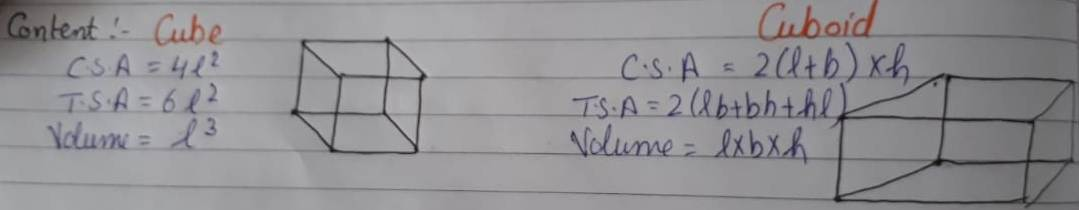 Content :- Cube
C.S.A = 4l²
T.S.A = 6l²
Volume = l³
Cuboid
C.S.A = 2(l+b) × h
T.S.A = 2(lb+bh+hl)
Volume = l×b×h